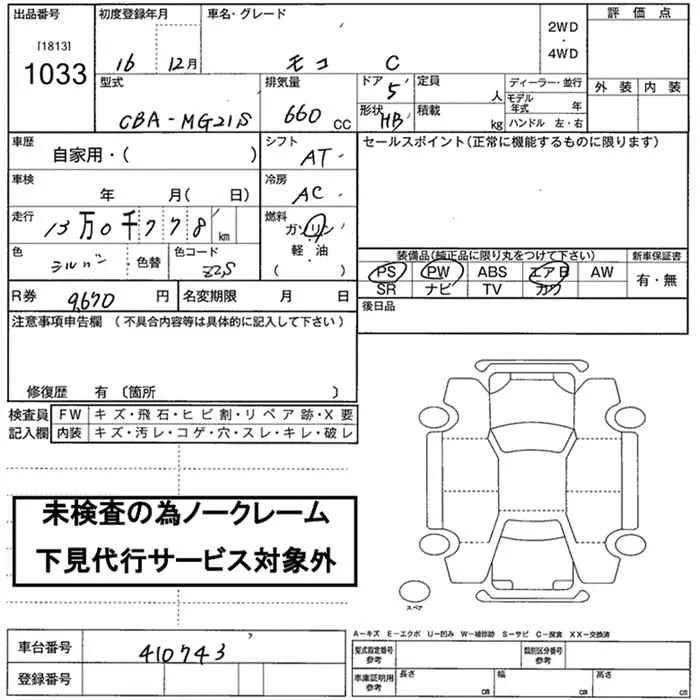 出品番号 初度登録年月 車名・グレード 評価点
[1813] 2WD
1033 16 12月 モコ C 4WD
型式 排気量 ドア 5 定員 人 ディーラー・並行 外装 内装
CBA-MG21S 660 CC 形状 HB 積載 kg モデル年式 年
ハンドル 左・右
車歴 自家用・( ) シフト AT セールスポイント(正常に機能するものに限ります)
車検 年 月( 日) 冷房 AC
走行 13万0千778 km 燃料 ガソリン
軽・油
( ・ )
色 色替 色コード Z2S 装備品(純正品に限り丸をつけて下さい) 新車保証書
PS PW ABS エアB AW 有・無
SR ナビ TV カワ
R券 9,670 円 名変期限 月 日 後日品
注意事項申告欄 (不具合内容等は具体的に記入して下さい)
修復歴 有 〔箇所 〕
検査員 FW キズ・飛石・ヒビ割・リペア跡・X要
記入欄 内装 キズ・汚レ・コゲ・穴・スレ・キレ・破レ
未検査の為ノークレーム
下見代行サービス対象外
スペア
A-キズ E-エクボ U-凹み W-補修跡 S-サビ C-腐食 XX-交換済
車台番号 410743 型式指定番号 参考 類別区分番号 参考
登録番号 車庫証明用 参考 長さ cm 幅 cm 高さ cm